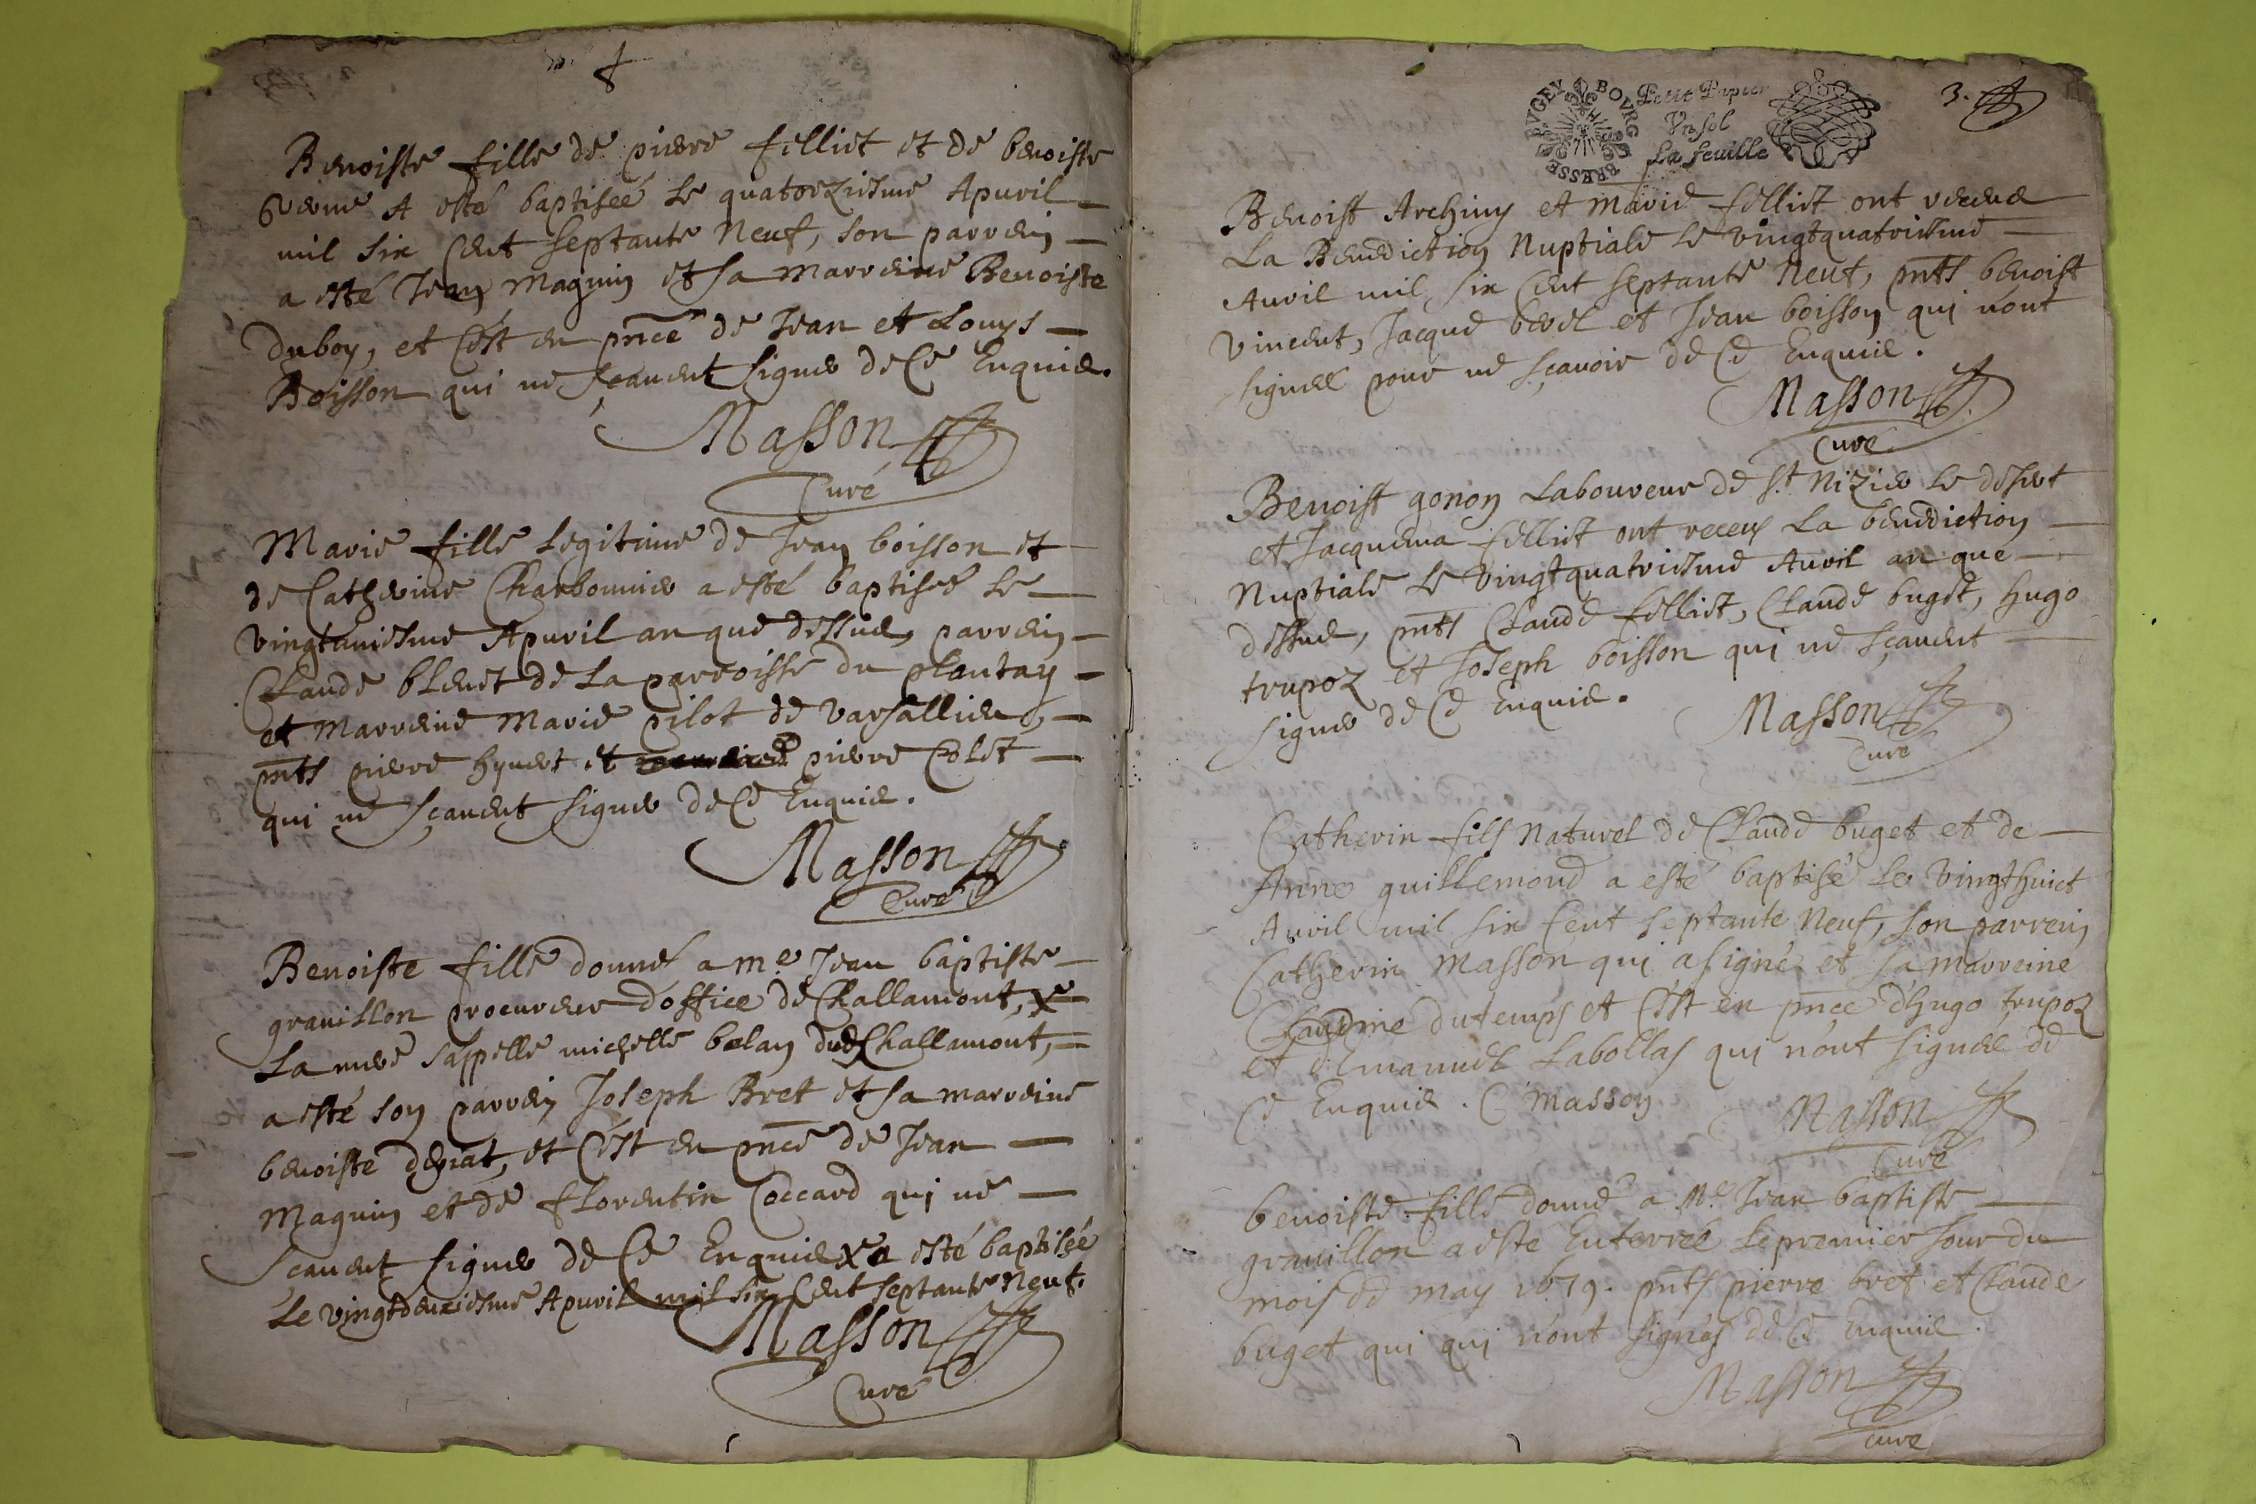 Benoiste fille de pierre felliet et de benoiste
A esté baptiseé le quatorziesme Apuril
mil six cent septante Neuf, son parrein
a esté Jean Magnin et sa marreine Benoiste
duboy, et c'est en pnce de Jean et Louys
Boisson qui ne sçauent signer de ce Enquis.
Masson
Curé
Marie fille legitime de Jean boisson et
de Catherine Charbonnier a esté baptiseé le
vingtuniesme Apuril an que dessus, parrein
Claude bleuet de la parroisse du plantay
et Marreine Marie pilot de varsallieu,
pnts pierre hyuert et pierre Colet
qui ne sçauent signer de ce Enquis.
Masson
Curé
Benoiste fille donné a me Jean baptiste
grauillon procureur d'office de Challamont, x
La mere s'appelle michelle balay dud Challamont,
a esté son parrein Joseph Bret et sa marreine
benoiste, et c'est en pnce de Jean
Magnin et de florentin Coccard qui ne
sçauent signer de ce Enquis x a esté baptisée
le vingtdeuxiesme Apuril mil six cent septante Neuf.
Masson
Curé
BVGEY BOVRG BRESSE
Petit Papier
Vn sol
La feuille
3.
Benoist Archiny et Marie felliet ont receue
La Benediction Nuptiale le vingtquatriesme
Auril mil six cent septante Neuf, pnts benoist
vincent, Jacque berel et Jean boisson qui n'ont
signez pour ne sçauoir de ce Enquis.
Masson
Curé
Benoist gonon Laboureur de st Nizier le desert
et Jacquema felliet ont receus La benediction
Nuptiale le vingtquatriesme Auril an que
dessus, pnts Claude felliet, Claude buget, hugo
trupoz et Joseph boisson qui ne sçauent
signer de ce Enquis.
Masson
Curé
Catherin fils Naturel de Claude buget et de
Anne guillemond a esté baptisé le vingthuict
Auril mil six cent septante Neuf, son parrein
Catherin Masson qui a signé et sa marreine
Claudine dutemps et c'est en pnce d'hugo trupoz
et Emanuel Labollas qui n'ont signez de
ce Enquis. C Masson
Masson
Curé
benoiste fille donné a Me Jean baptiste
grauillon a esté Enterreé le premier Jour du
mois de may 1679. pnts pierre bret et Claude
buget qui qui n'ont signés de ce Enquis.
Masson
Curé